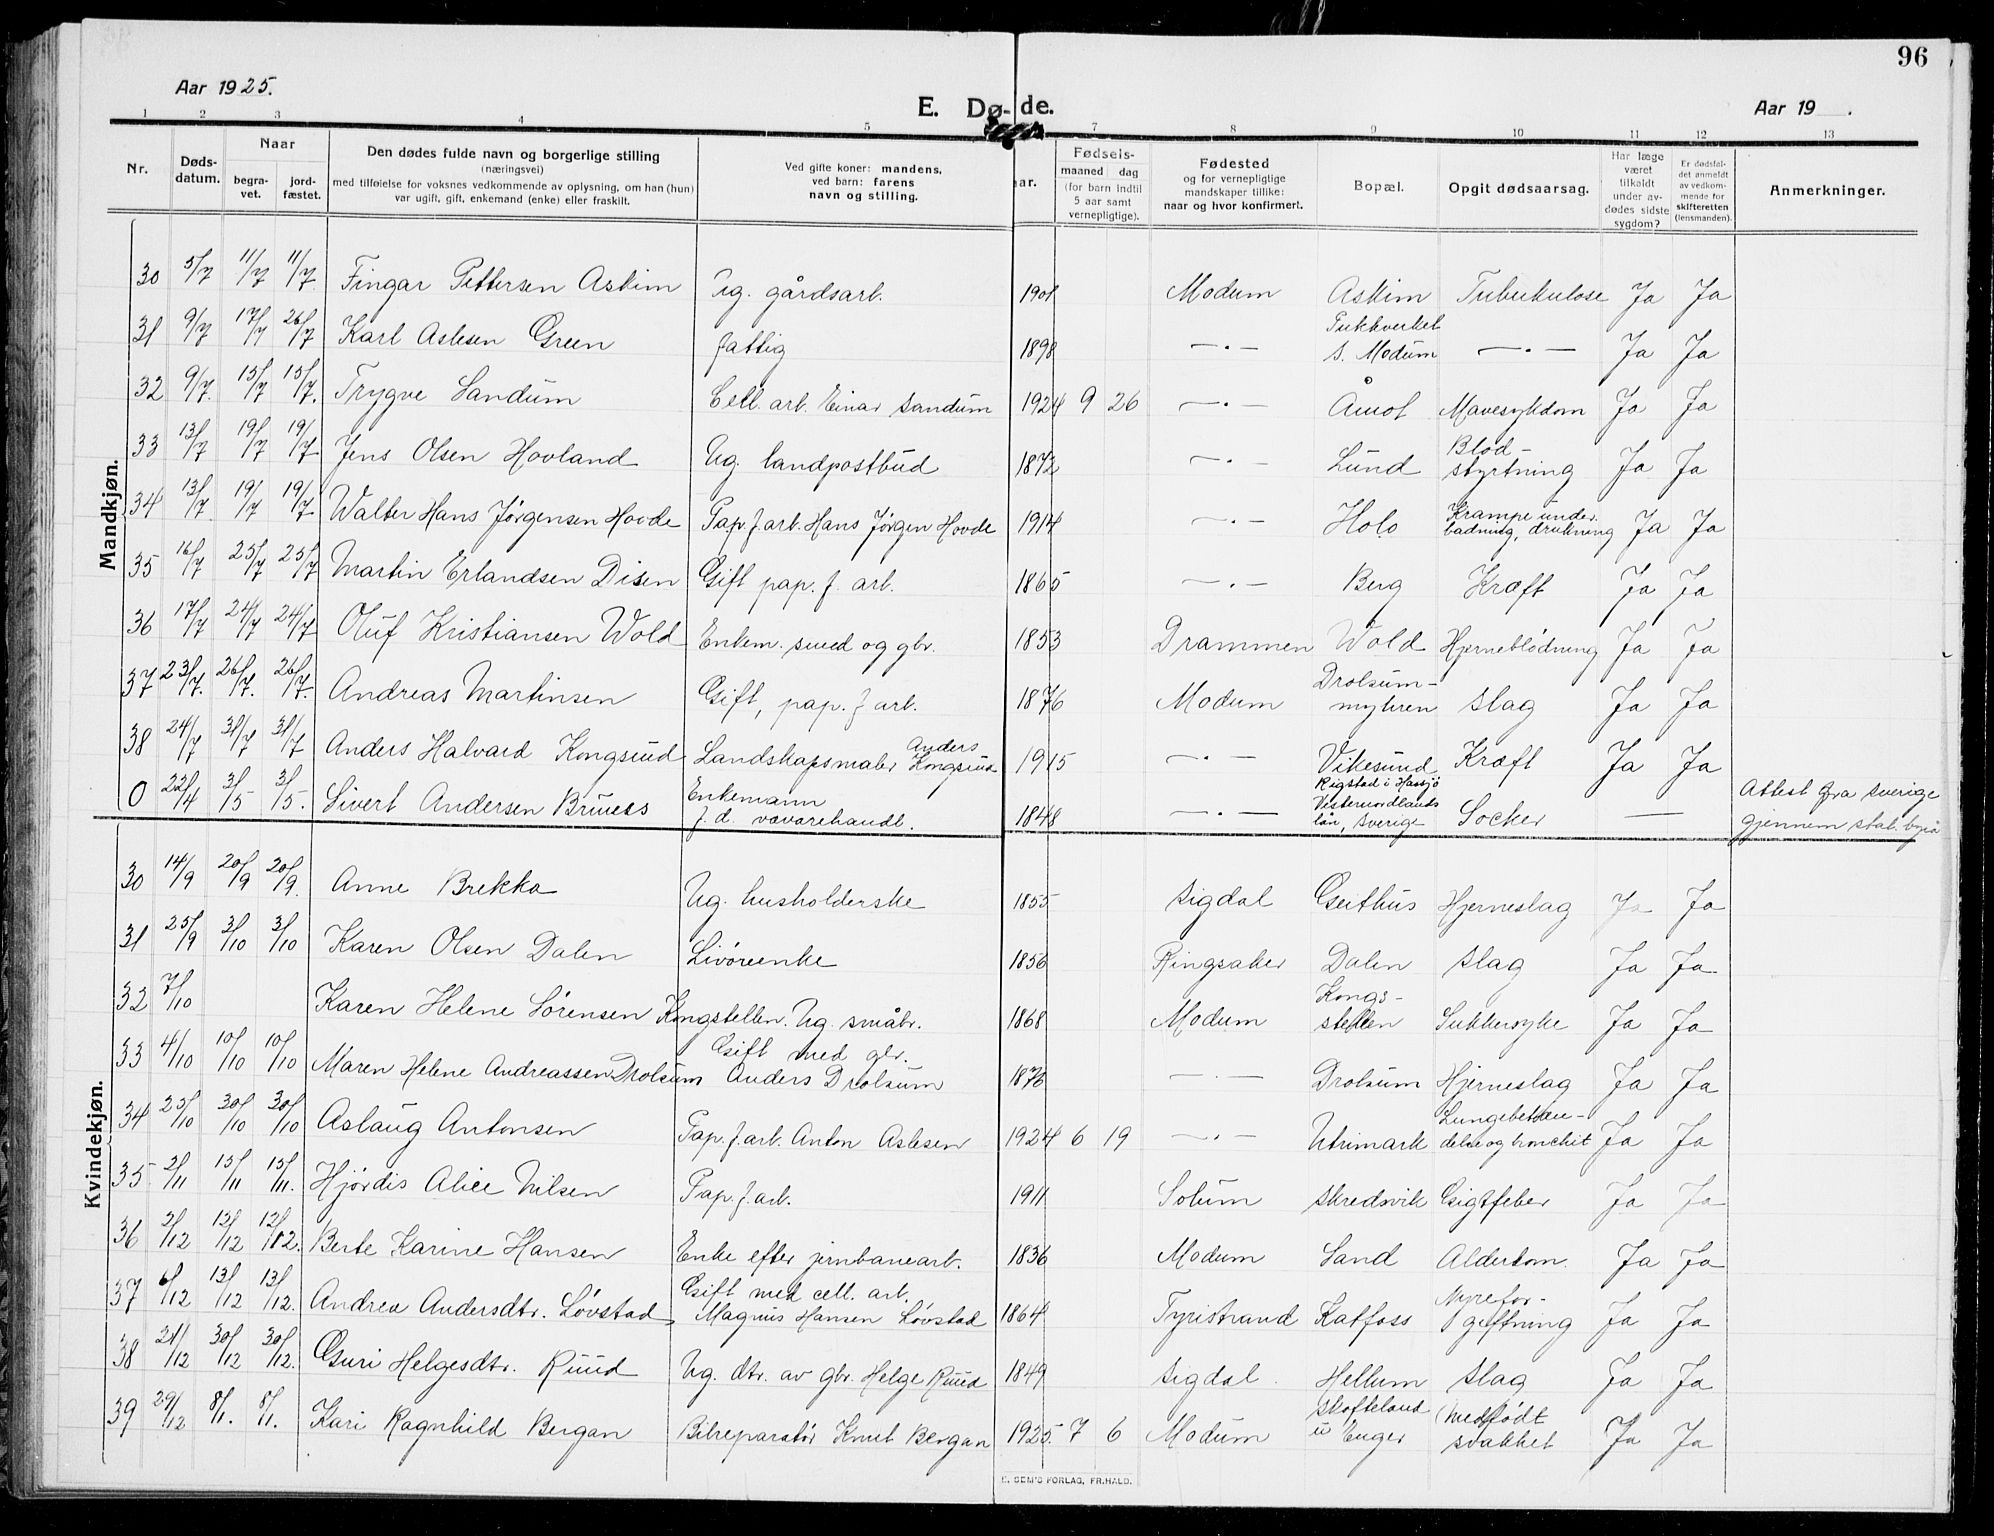 96
Aar 1925.
E. Dø- de.
Aar 19 .
1 2 3 4 5 7 8 9 10 11 12 13
Nr.
Døds-
datum.
Naar
begra-
vet.
jord-
fæstet.
Den dødes fulde navn og borgerlige stilling
(næringsvei)
med tilføielse for voksnes vedkommende av oplysning, om han (hun)
var ugift, gift, enkemand (enke) eller fraskilt.
Ved gifte koner: mandens,
ved barn: farens
navn og stilling.
ar.
Fødsels-
maaned dag
(for barn indtil
5 aar samt
vernepligtige).
Fødested
og for vernepligtige
mandskaper tillike:
naar og hvor konfirmert.
Bopæl.
Opgit dødsaarsag.
Har læge
været
tilkaldt
under av-
dødes sidste
sygdom?
Er dødsfal-
det anmeldt
av vedkom-
mende for
skifteretten
(lensmanden).
Anmerkninger.
Mandkjøn.
30 5/7 11/7 11/7 Fingar Pettersen Askim Ug. gårdsarb. 1901 Modum Askim Tuberkulose Ja Ja
31 9/7 17/7 26/7 Karl Aslesen Green fattig 1898 —·— Pukkverket S. Modum —·— Ja Ja
32 9/7. 15/7 15/7. Trygve Sandum Cell. arb. Einar Sandum 1924 9 26 —·— Åmot Mavesykdom Ja Ja
33 13/7 19/7 19/7 Jens Olsen Hovland Ug. landpostbud 1872 —·— Lund Blod-styrtning Ja Ja
34 13/7. 19/7 19/7 Walter Hans Jørgensen Hovde Pap. f. arb. Hans Jørgen Hovde 1914 —·— Holo Krampe under badning, drukning Ja Ja
35 16/7 25/7 25/7 Martin Erlandsen Disen Gift pap. f. arb. 1865 —·— Berg Kræft Ja Ja
36 17/7 24/7 24/7 Oluf Kristiansen Wold Enkem. smed og gbr. 1853 Drammen Wold Hjerneblödning Ja Ja
37 23/7. 26/7. 26/7. Andreas Martinsen Gift, pap. f arb. 1876 Modum Drolsum-myhren Slag Ja Ja
38 24/7 31/7 31/7 Anders Halvard Kongsrud Landskapsmaler Anders Kongsrud 1915 —·— Vikesund Kræft Ja Ja
0 22/4 3/5 3/5. Sivert Andersen Bruess Enkemann f. d. vævarehandl. 1848 —·— Rigstad i Hassjö Vesternordlands län, Sverige Socker — Attest fra Sverige gjennem stat. byrå
Kvindekjøn.
30 14/9 20/9 20/9. Anne Brekka Ug. husholderske 1855 Sigdal Geithus Hjerneslag Ja Ja
31 25/9 3/10 3/10 Karen Olsen Dalen Livöreenke 1856 Ringsaker Dalen Slag Ja Ja
32 7/10 Karen Helene Sörensen Kongstellen. Ug. småbr. 1868 Modum Kongs-stellen Sukkersyke Ja Ja
33 4/10 10/10 10/10 Maren Helene Andreassen Drolsum Gift med gbr. Anders Drolsum 1876 —·— Drolsum Hjerneslag Ja Ja
34 25/10 30/10 30/10 Aslaug Antonsen Pap. f. arb. Anton Aslesen 1924 6 19 —·— Utrimark Lungebetæn-delse og bronchit Ja Ja
35 2/11 15/11 15/11. Hjördis Alice Nilsen Pap. f. arb. 1911 Solum Skredsvik Gigtfeber Ja Ja
36 2/12 12/12 12/182. Berte Karine Hansen Enke efter jernbanearb. 1836 Modum Sand Alderdom. Ja Ja
37 6/12 13/12 13/12. Andrea Andersdtr. Lövstad Gift med cell. arb. Magnus Hansen Lövstad 1864 Tyristrand Katfoss Nyrefor-giftning Ja Ja
38 21/12 30/12 30/12. Guri Helgesdtr. Ruud Ug. dtr. av gbr. Helge Ruud 1849 Sigdal. Hellum Slag Ja Ja
39 29/12 8/1. 8/1. Kari Ragnhild Bergan Bilreparatör Knut Bergan 1925. 7 6 Modum Skofteland u Enger Medfödt svakhet Ja Ja
E. SEM'S FORLAG, FR.HALD.